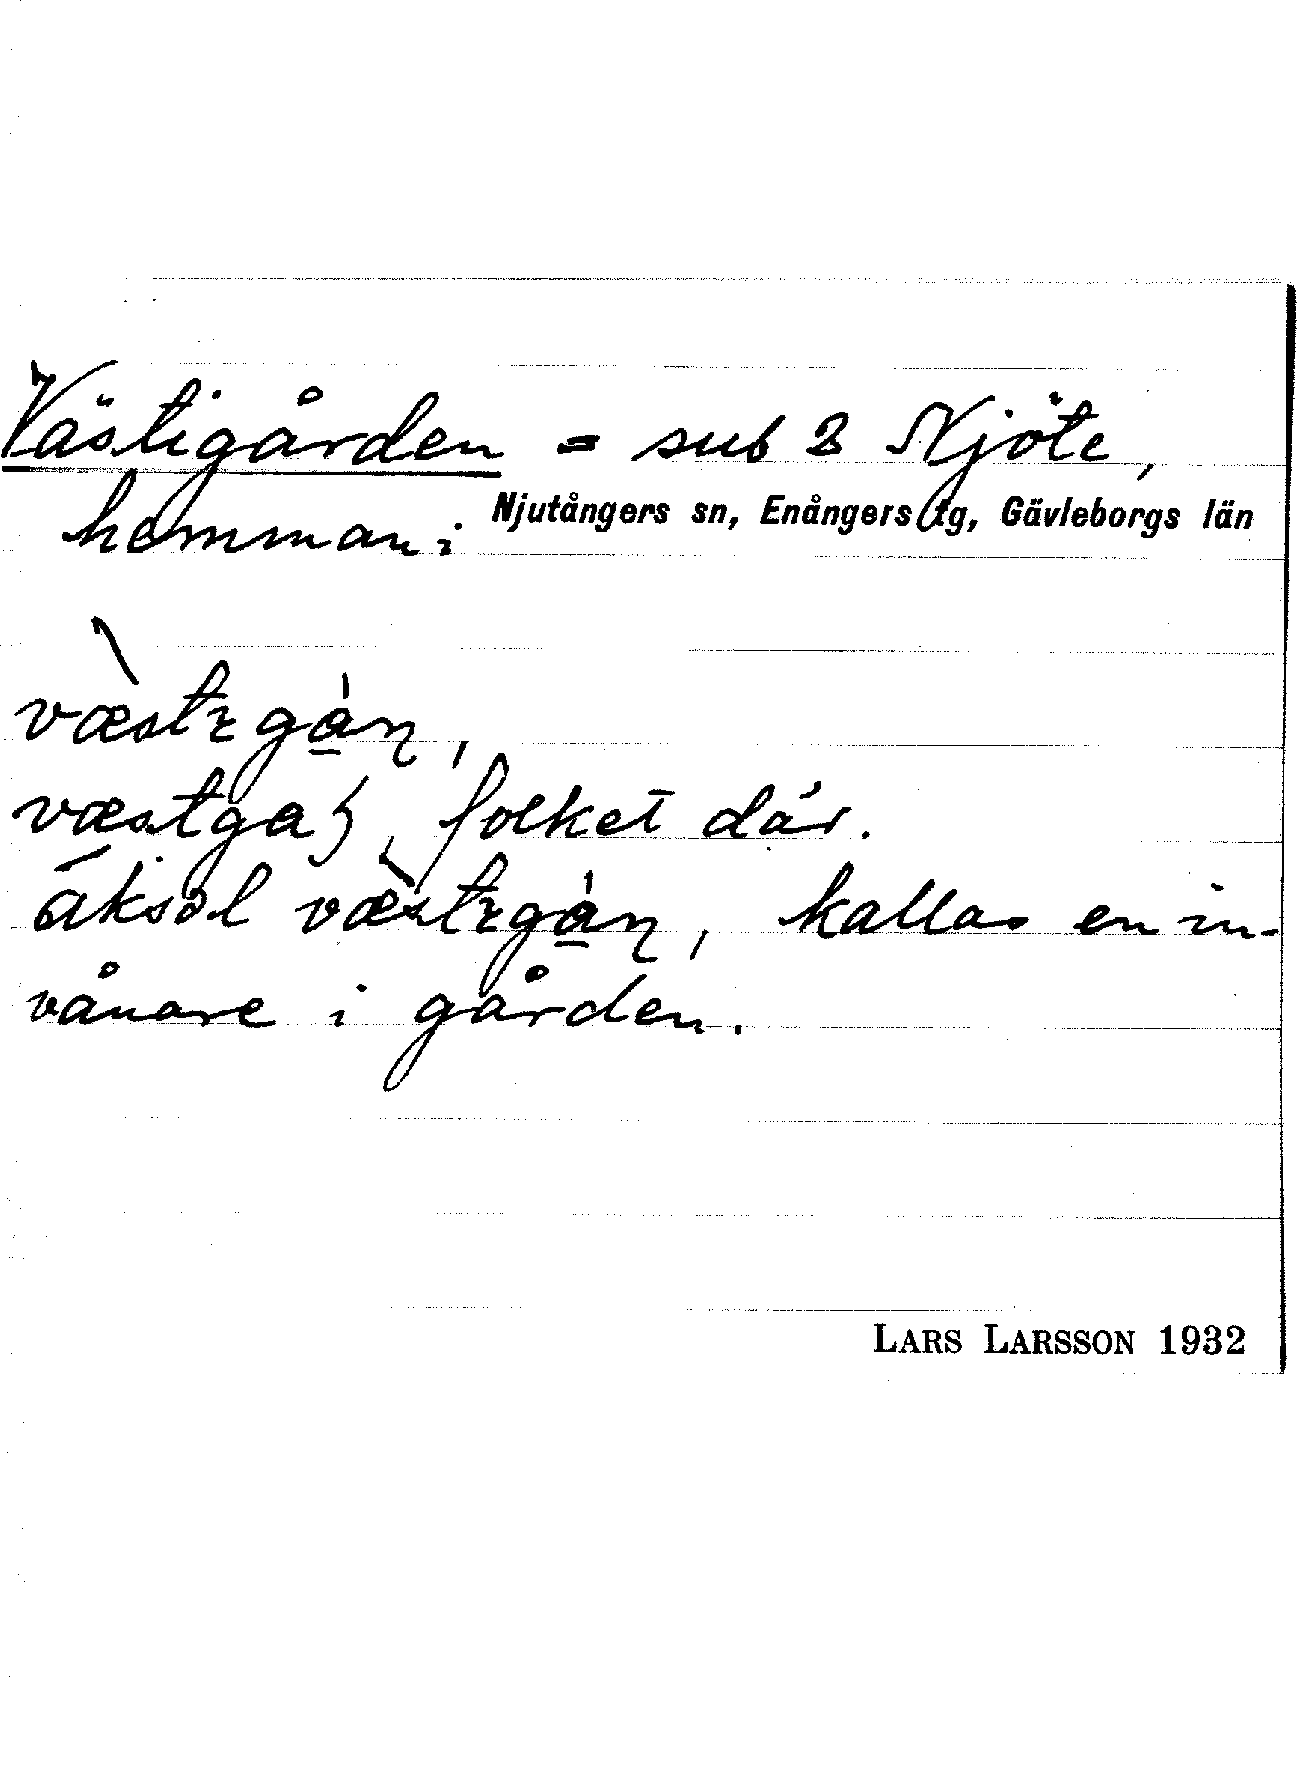 Västigården = sub 2 Njöte,
hemman i Njutångers sn, Enångers tg, Gävleborgs län
væstıgạ̀ṇ,
folket där.
væstıgạ̀ṇ, kallas en in-
vånare i gården.
LARS LARSSON 1932